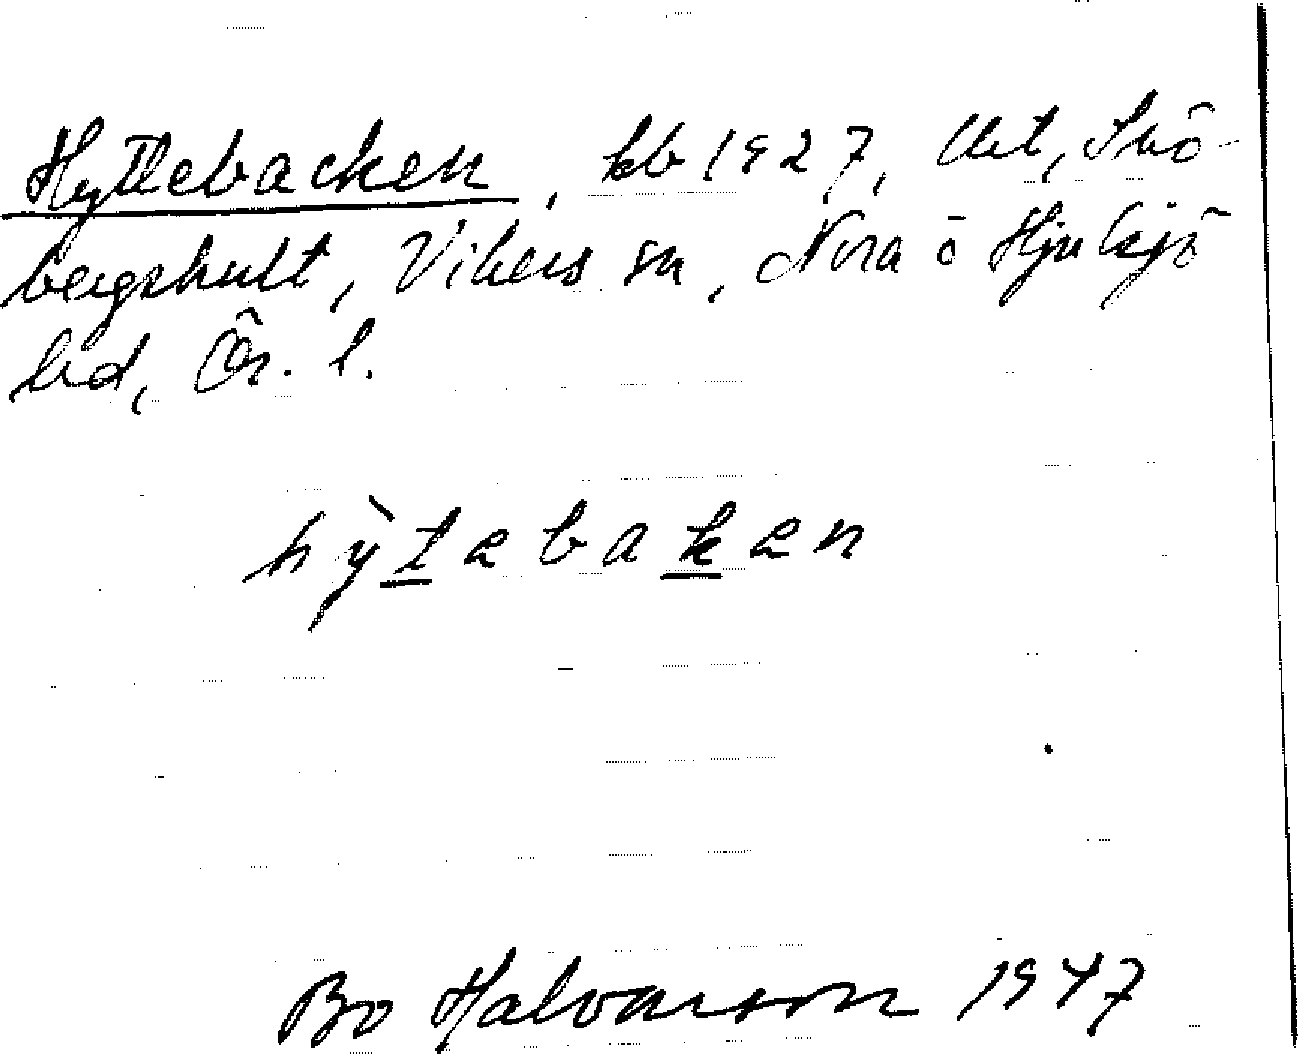 Hyttebacken, kb 1927, Urt, Skö-
bergshult, Vikers sn, Nora o Hjulsjö
bd, Ör. l.
hỳtebaken
Bo Halvarson 1947